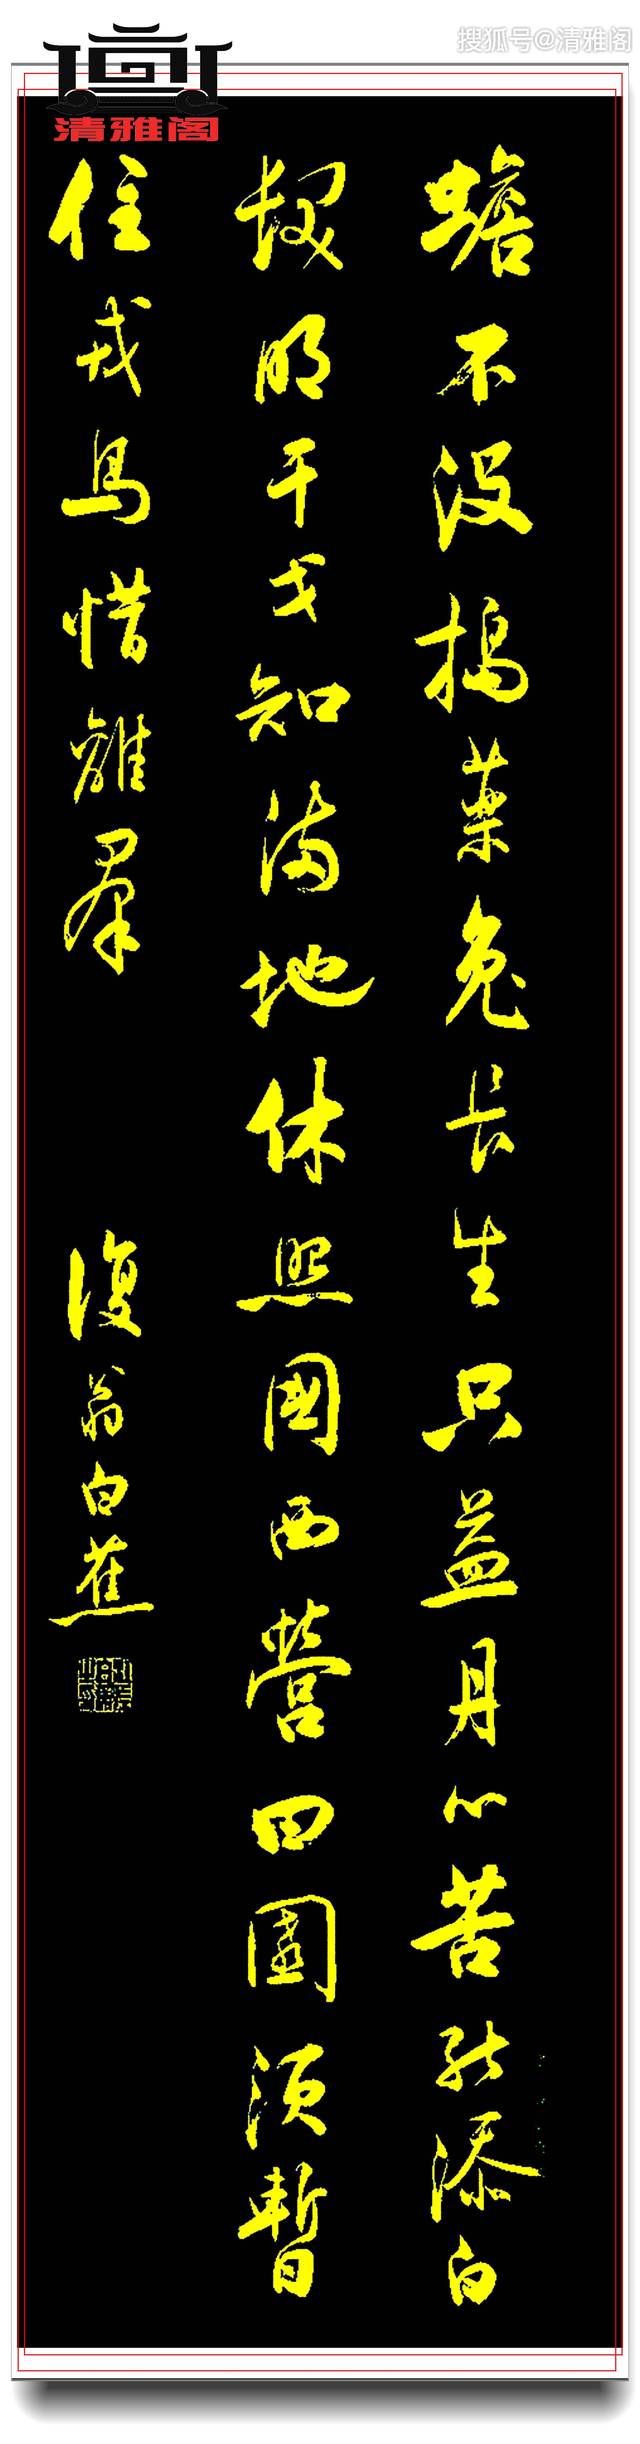 搜狐号@清雅阁
清雅阁
蟾不没搗藥兔長生只益丹心苦能添白
髮明干戈知滿地休照國西營田園須暫
住戎馬惜離羣
復翁白蕉